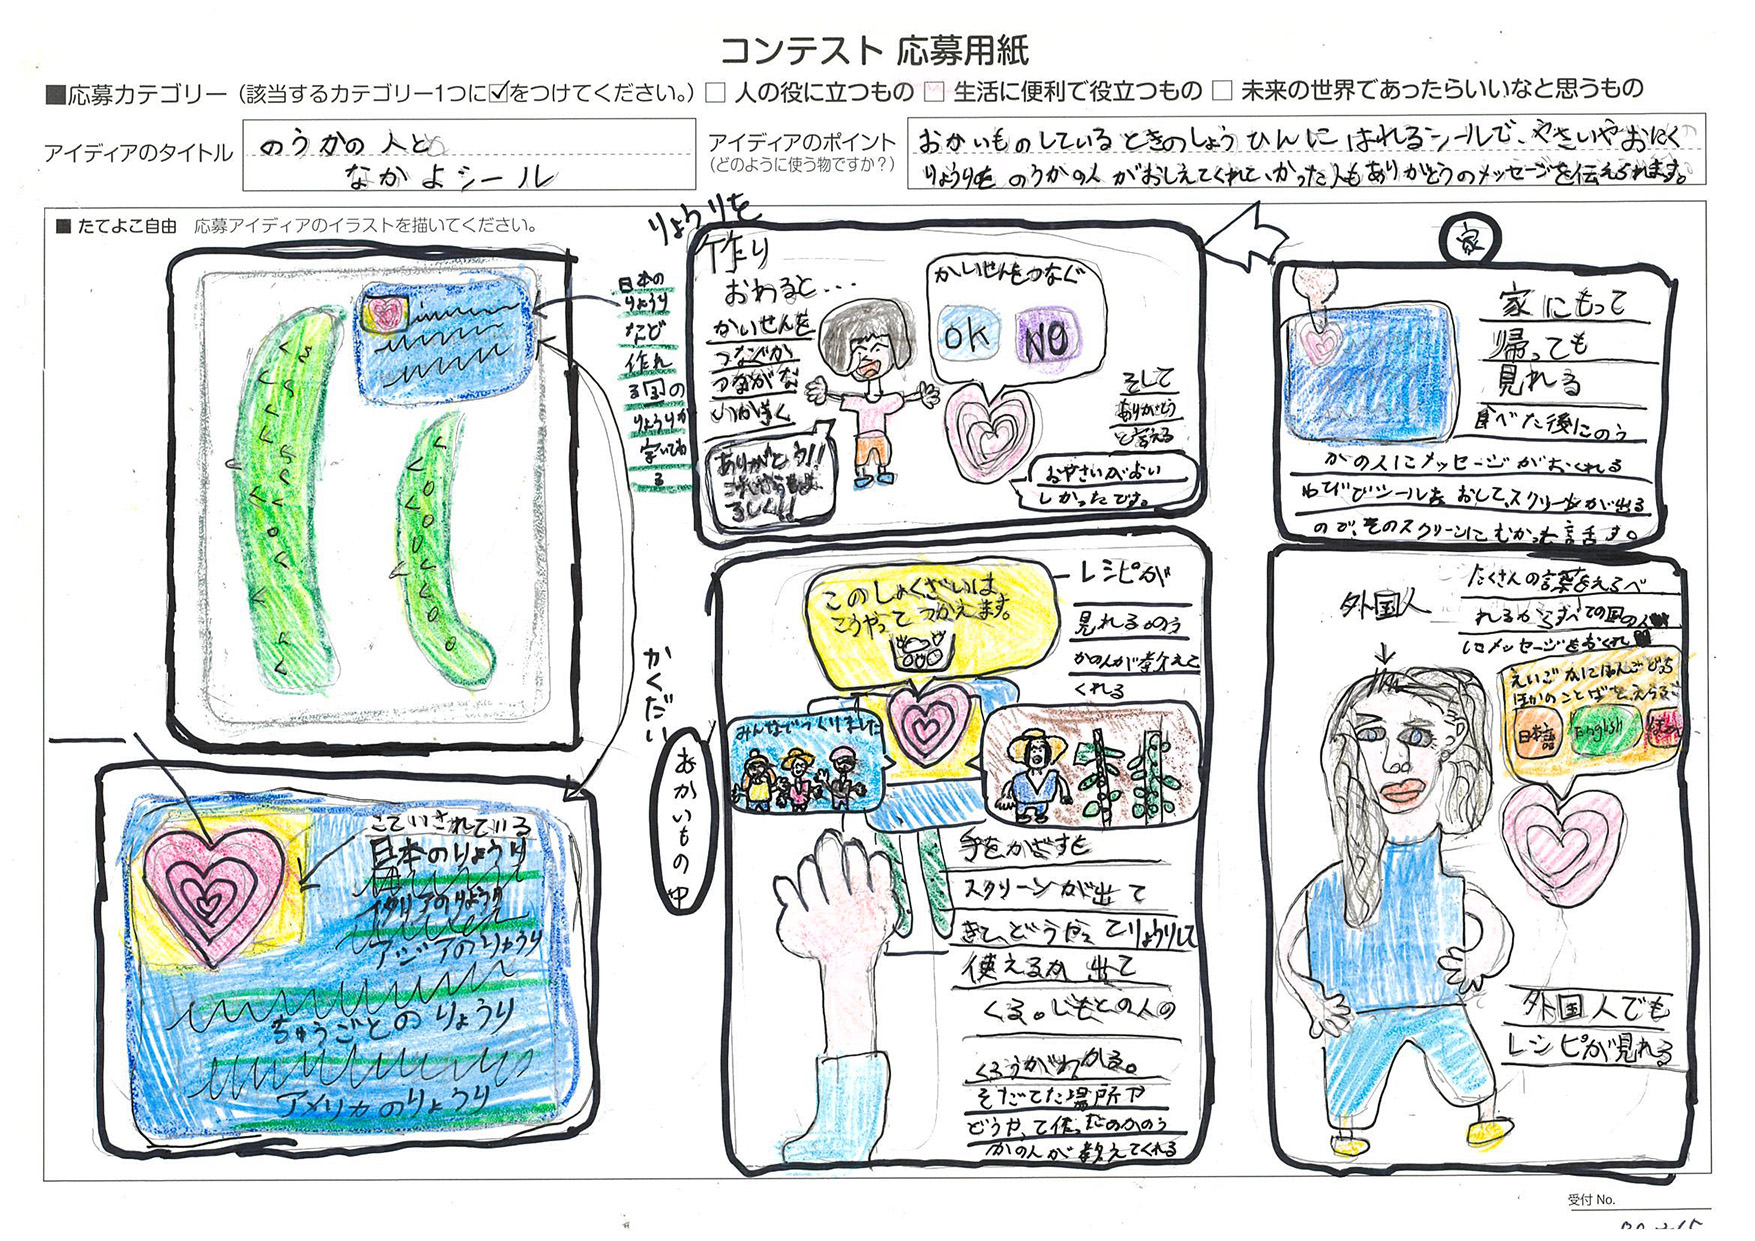 コンテスト 応募用紙
■応募カテゴリー（該当するカテゴリー1つに☑をつけてください。）□ 人の役に立つもの □ 生活に便利で役立つもの □ 未来の世界であったらいいなと思うもの
アイディアのタイトル
のうかの人と
なかよシール
アイディアのポイント
（どのように使う物ですか？）
おかいものしているときのしょうひんにはれるシールで、やさいやおにく
りょうりを のうかの人がおしえてくれて、かった人もありがとうのメッセージを伝えられます。
■ たてよこ自由 応募アイディアのイラストを描いてください。
日本の
りょうり
など
作れ
る国の
りょうりが
りょうりを
作り
おわると・・・
かいせんを
つなぐか
つながな
いかきく
かいせんをつなぐ
OK
NO
そして
ありがとう
と言える
ありがとう!!
おやさいがおい
しかったです。
家
家にもって
帰っても
見れる
食べた後にのう
かの人にメッセージがおくれる
ゆびでシールをおして、スクリーンが出る
ので、そのスクリーンにむかって話す。
こていされている
日本のりょうり
イタリアのりょうり
アジアのりょうり
ちゅうごくのりょうり
アメリカのりょうり
かくだい
おかいもの中
このしょくざいは
こうやってつかえます。
レシピが
見れる。のう
かの人が教えて
くれる
みんなでつくりました
手をかざすと
スクリーンが出て
きて、どうやってりょうりして
使えるか出て
くる。じもとの人の
くろうがわかる。
そだてた場所や
どうやって作ったのかのう
かの人が教えてくれる
外国人
たくさんの言葉をえらべ
れるからすべての国の人
にメッセージをおくれ
えいごかにほんごどっち
ほかのことばをえらぶ
日本語
English
外国人でも
レシピが見れる
受付 No.